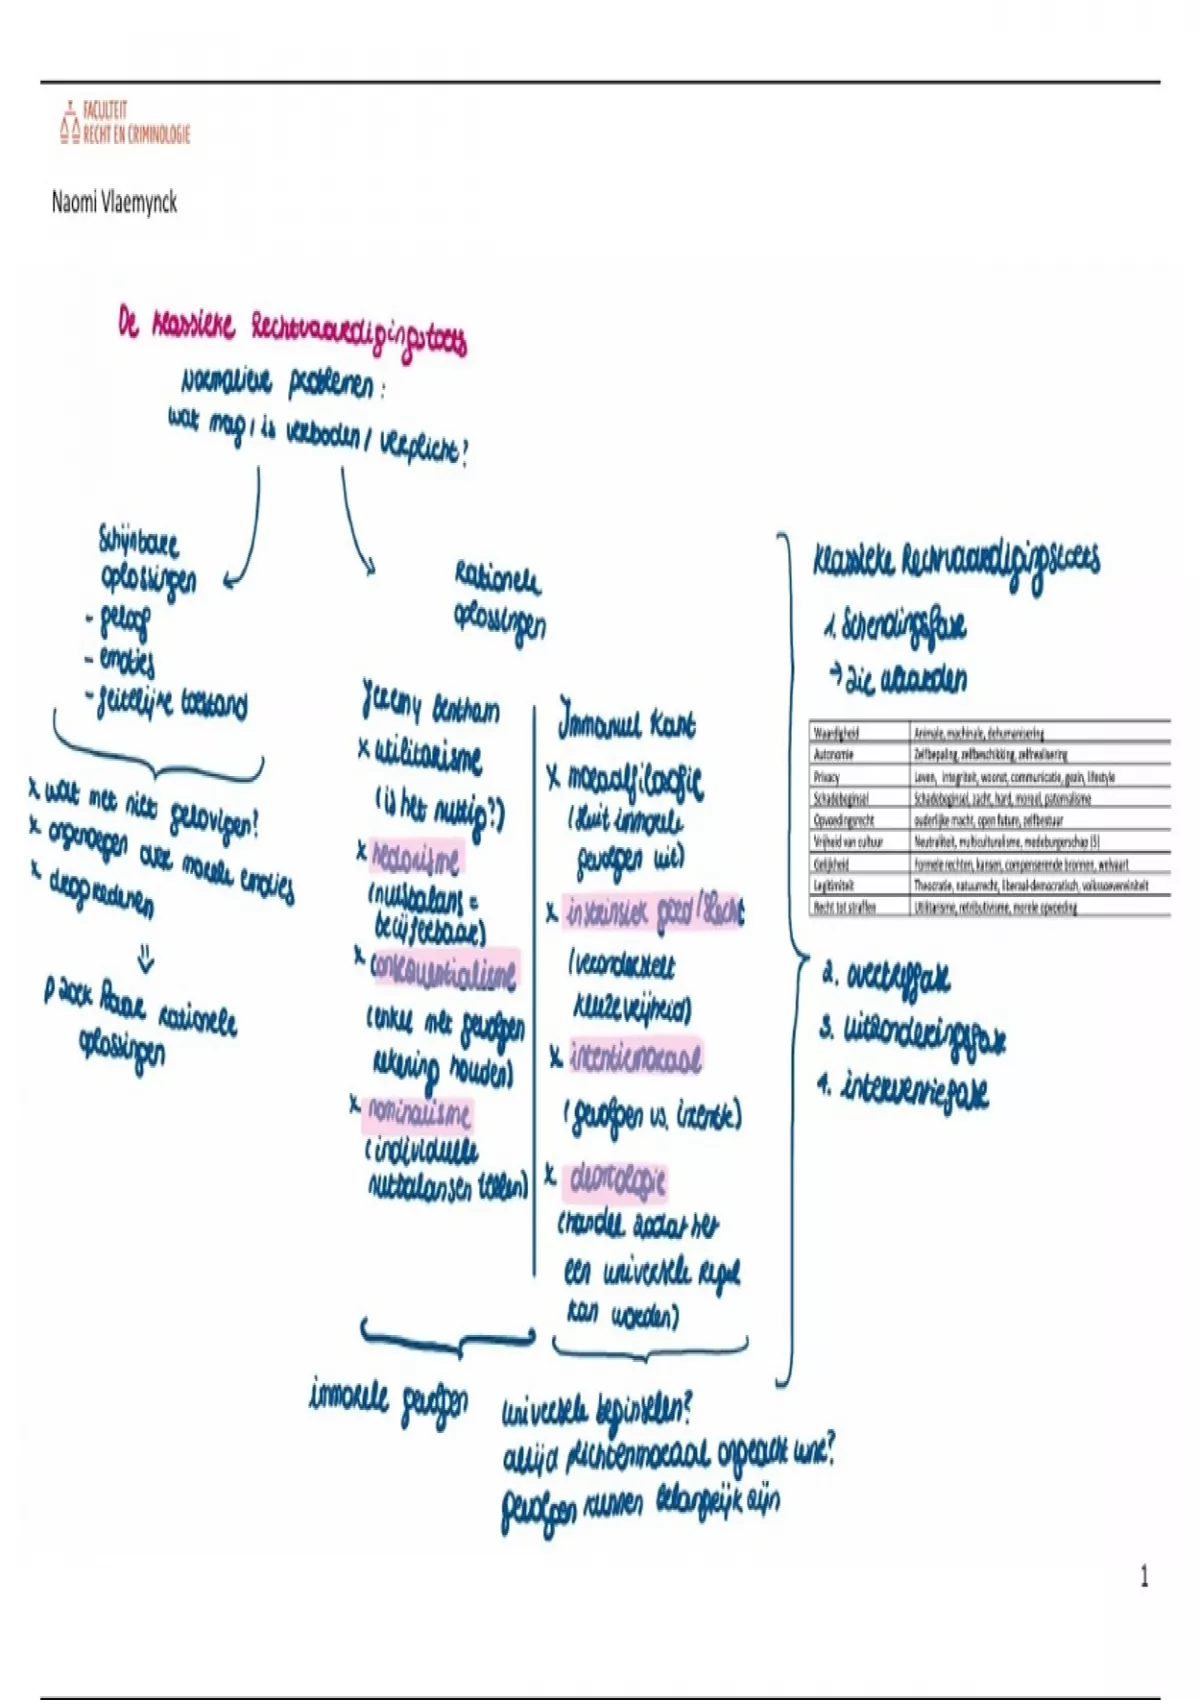 FACULTEIT
RECHT EN CRIMINOLOGIE
Naomi Vlaemynck
De klassieke Rechtvaardigingstoets
Normatieve problemen:
wat mag, is verboden / verplicht?
Schijnbare
oplossingen
- geloof
- emoties
- feitelijke toestand
x wat met niet gelovigen?
x ongenoegen over morele emoties
x drogredenen
zoek naar rationele
oplossingen
Rationele
oplossingen
Jeremy Bentham
x utilitarisme
(is het nuttig?)
x hedonisme
(nutsbalans =
becijferbaar)
x consequentialisme
(enkel met gevolgen
rekening houden)
x nominalisme
(individuele
nutbalansen tellen)
immorele gevolgen
Immanuel Kant
x moraalfilosofie
(sluit immorele
gevolgen uit)
x intrinsiek goed/slecht
(veronderstelt
keuzevrijheid)
x intentiemoraal
(gevolgen vs. intentie)
x deontologie
(handel zodat het
een universele regel
kan worden)
universele beginselen?
altijd plichtenmoraal ongeacht wie?
gevolgen kunnen belangrijk zijn
klassieke Rechtvaardigingstoets
1. Schendingsfase
→ zie waarden
Waardigheid Animale, machinale, dehumanisering
Autonomie Zelfbepaling, zelfbeschikking, zelfrealisering
Privacy Leven, integriteit, woonst, communicatie, gezin, lifestyle
Schadebeginsel Schadebeginsel, zacht, hard, moreel, paternalisme
Opvoedingsrecht ouderlijke macht, open future, zelfbestuur
Vrijheid van cultuur Neutraliteit, multiculturalisme, medeburgerschap (S)
Gelijkheid Formele rechten, kansen, compenserende bronnen, welvaart
Legitimiteit Theocratie, natuurrecht, liberaal-democratisch, volkssoevereiniteit
Recht tot straffen Utilitarisme, retributivisme, morele opvoeding
2. overtreffase
3. uitzonderingsfase
4. interventiefase
1